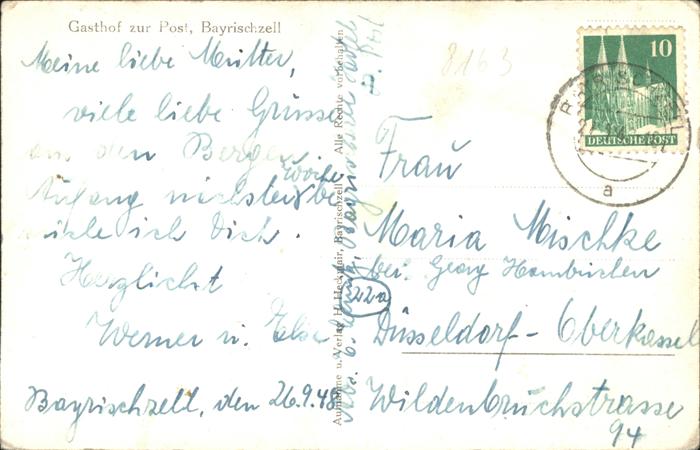 Gasthof zur Post, Bayrischzell
Meine liebe Mutter,
viele liebe Grüsse
aus den Bergen
Anfang nächster Woche be
ich Dich.
Herzlichst
Werner u. Else
Bayrischzell, den 26.9.48
Aufnahme u. Verlag H. Heckmair, Bayrischzell Alle Rechte vorbehalten
z. Post
8163
10
DEUTSCHE POST
a
Frau
Maria Mischke
bei Georg Hambüchen
22a
Düsseldorf-Oberkassel
Wildenbruchstrasse
94